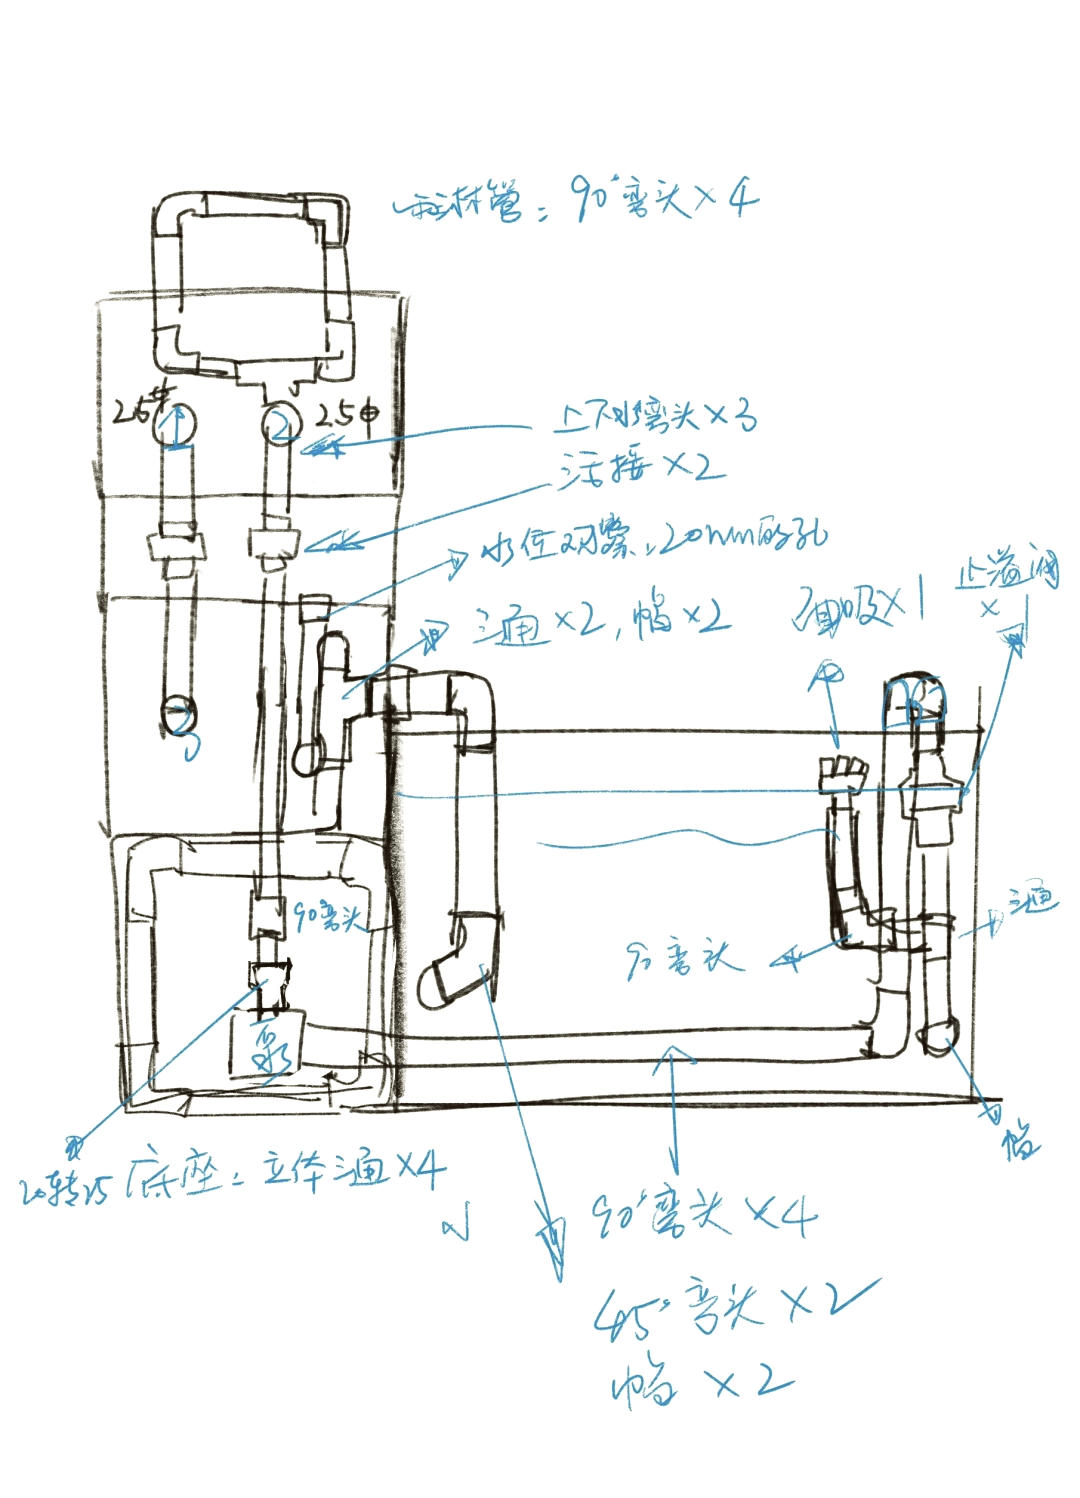 雨淋管：90°弯头×4
25中 1
2 25中
上下水弯头×3
活接×2
水位观察：20mm的孔
三通×2，帽×2
面吸×1
止溢阀
×1
3
90弯头
三通
90弯头
泵
帽
20转25
底座：立体三通×4
90°弯头×4
45°弯头×2
帽×2